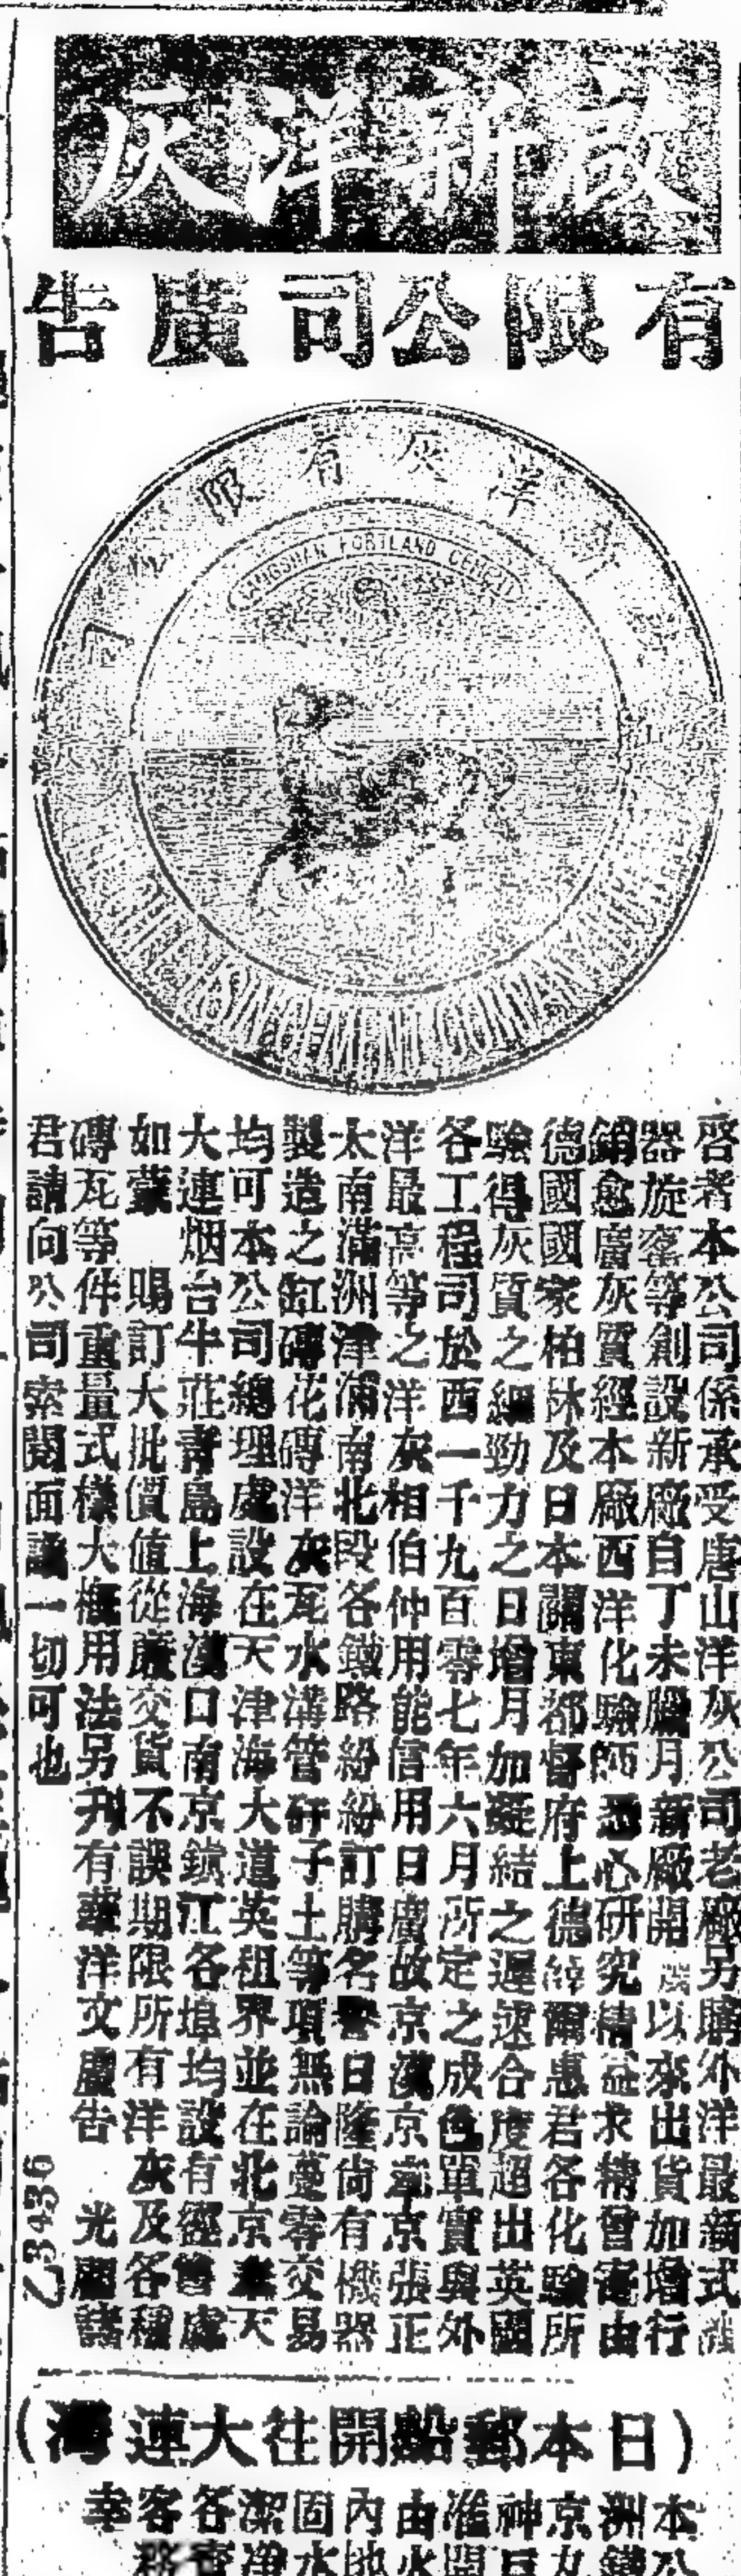 啟新洋灰
有限公司廣告
洋灰有限
PORTLAND CEMENT
CEMENT COMPANY
啓者本公司係承受唐山洋灰公司老廠另購外洋最新式機
器旋窰等創設新廠自丁未臘月新廠開 以來出貨加增行
銷愈廣灰質經本廠西洋化驗師悉心研究精益求精曾寄由
德國國家柏林及日本關東都督府上德 爾惠君各化驗所
驗得灰質之細勁力之日增月加凝結之遲速合度超出英國
各工程司於西一千九百零七年六月所定之成色單實與外
洋最高等之洋灰相伯仲用能信用日廣故京漢京奉京張正
太南滿洲津浦南北段各鐵路紛紛訂購名譽日隆尙有機器
製造之缸磚花磚洋灰瓦水溝管矸子土等項無論躉零交易
均可本公司總理處設在天津海大道英租界並在北京奉天
大連烟台牛莊靑島上海漢口南京鎭江各埠均設有經售處
如蒙 賜訂大批價值從廉交貨不誤期限所有洋灰及各種
磚瓦等件重量式樣大槪用法另刋有華洋文廣告 光顧諸
君請向公司索閱面議一切可也
Z3436
(日本郵船開往大連灣)
本公
洲鐵
京
神戶
准開
由水
內地
固水
潔淨
各
客
幸